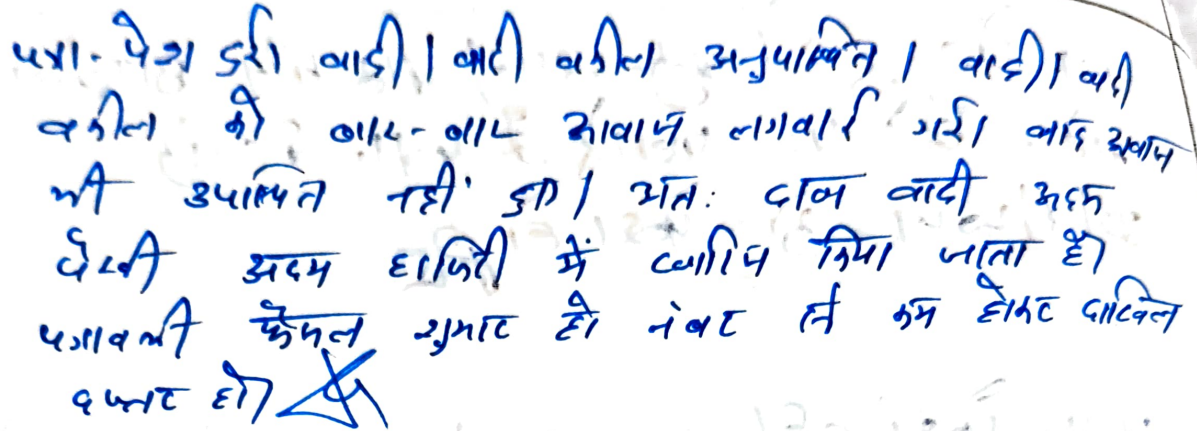 पत्रा. पेश हुई। वादी। वादी वकील अनुपस्थित। वादी। वादी
वकील को बार-बार आवाज लगवाई गई। बाद आवाज
भी उपस्थित नहीं हुए। अतः दावा वादी अदम
पैरवी अदम हाजिरी में खारिज किया जाता है।
पत्रावली फैसल शुमार हो नंबर से कम होकर दाखिल
दफ्तर हो।